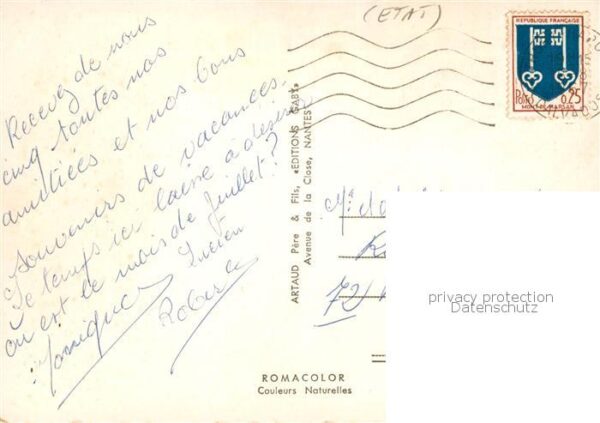 (ETAT)
REPUBLIQUE FRANÇAISE
POSTES 0,25
MONT-DE-MARSAN
Recevez de nous
cinq toutes nos
amitiées et nos bons
souvenirs de vacances.
Le temps ici laisse à désirer
où est le mois de Juillet?
Monique Lucien
ARTAUD Père & Fils, «EDITIONS GABY»
Avenue de la Close, NANTES
72
privacy protection
Datenschutz
ROMACOLOR
Couleurs Naturelles